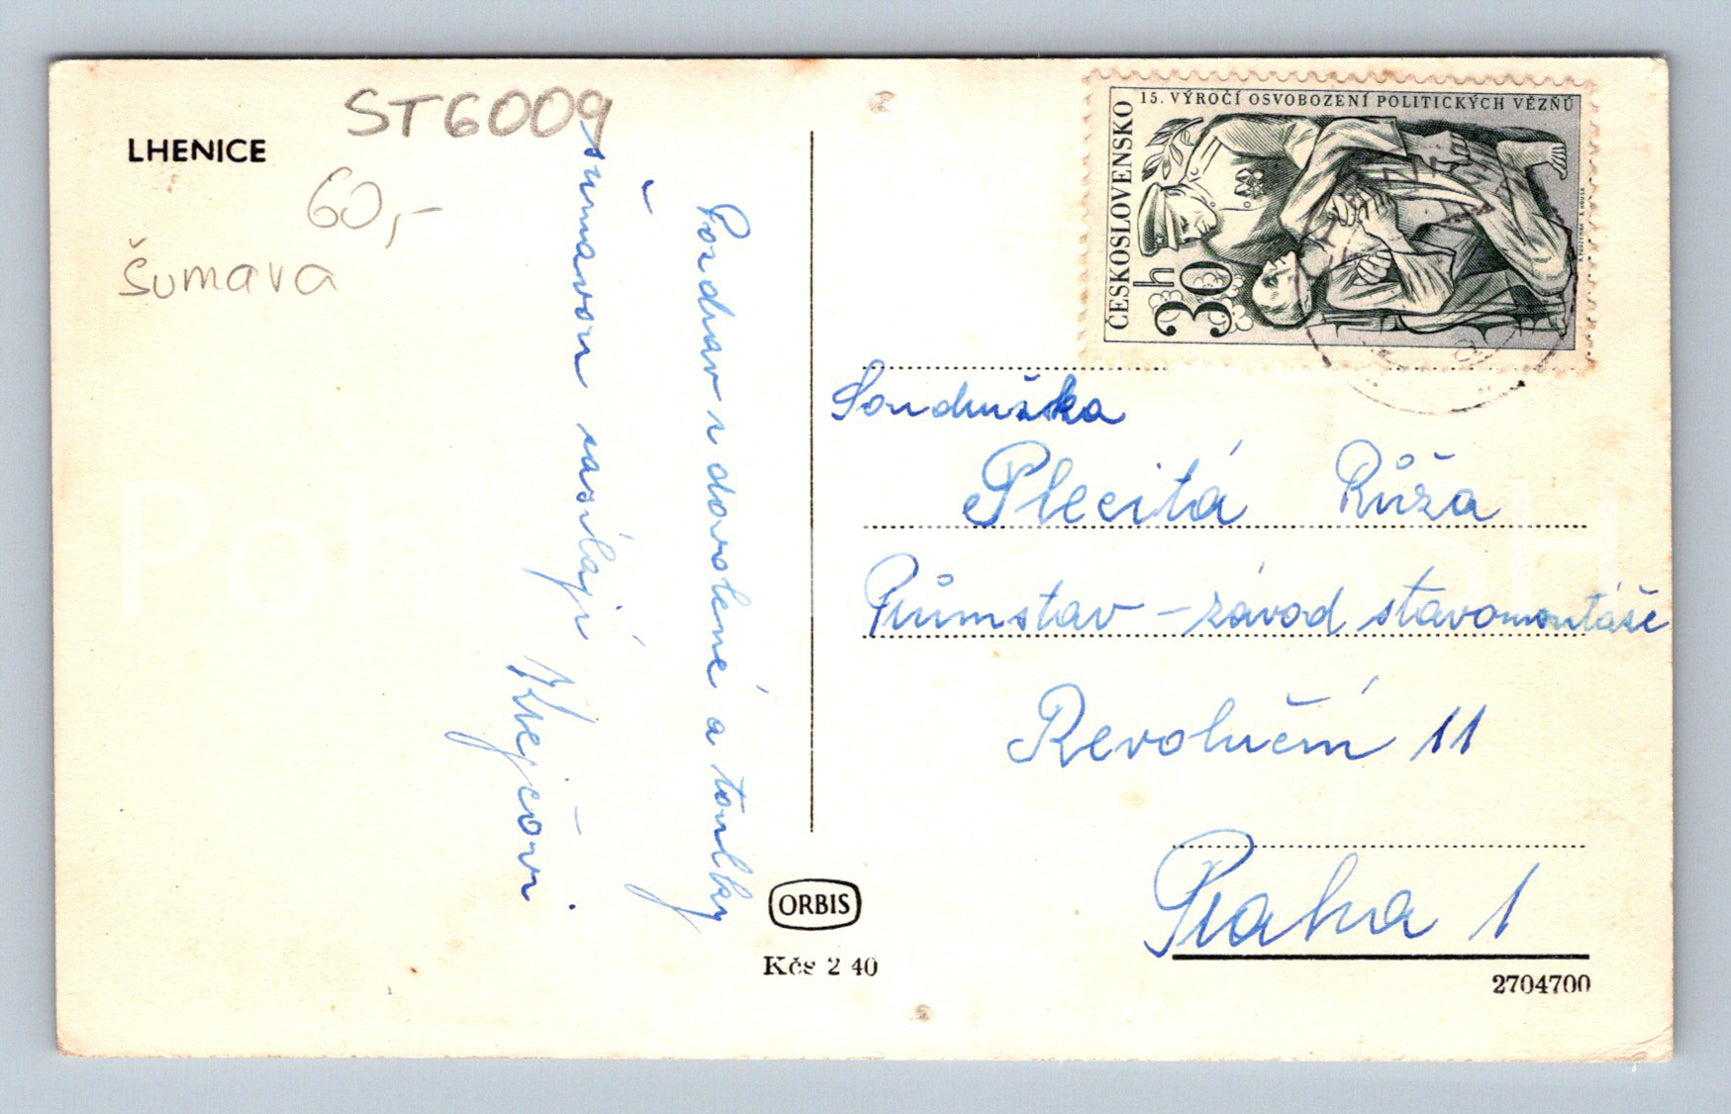 LHENICE
ST6009
60,-
Šumava
Pozdrav z dovolené a toulky
šumavou zasílají
Krejčovi.
15. VÝROČÍ OSVOBOZENÍ POLITICKÝCH VĚZŇŮ
ČESKOSLOVENSKO
30 h
Soudružka
Plecitá Růža
Průmstav - závod stavomontáže
Revoluční 11
Praha 1
ORBIS
Kčs 2 40
2704700